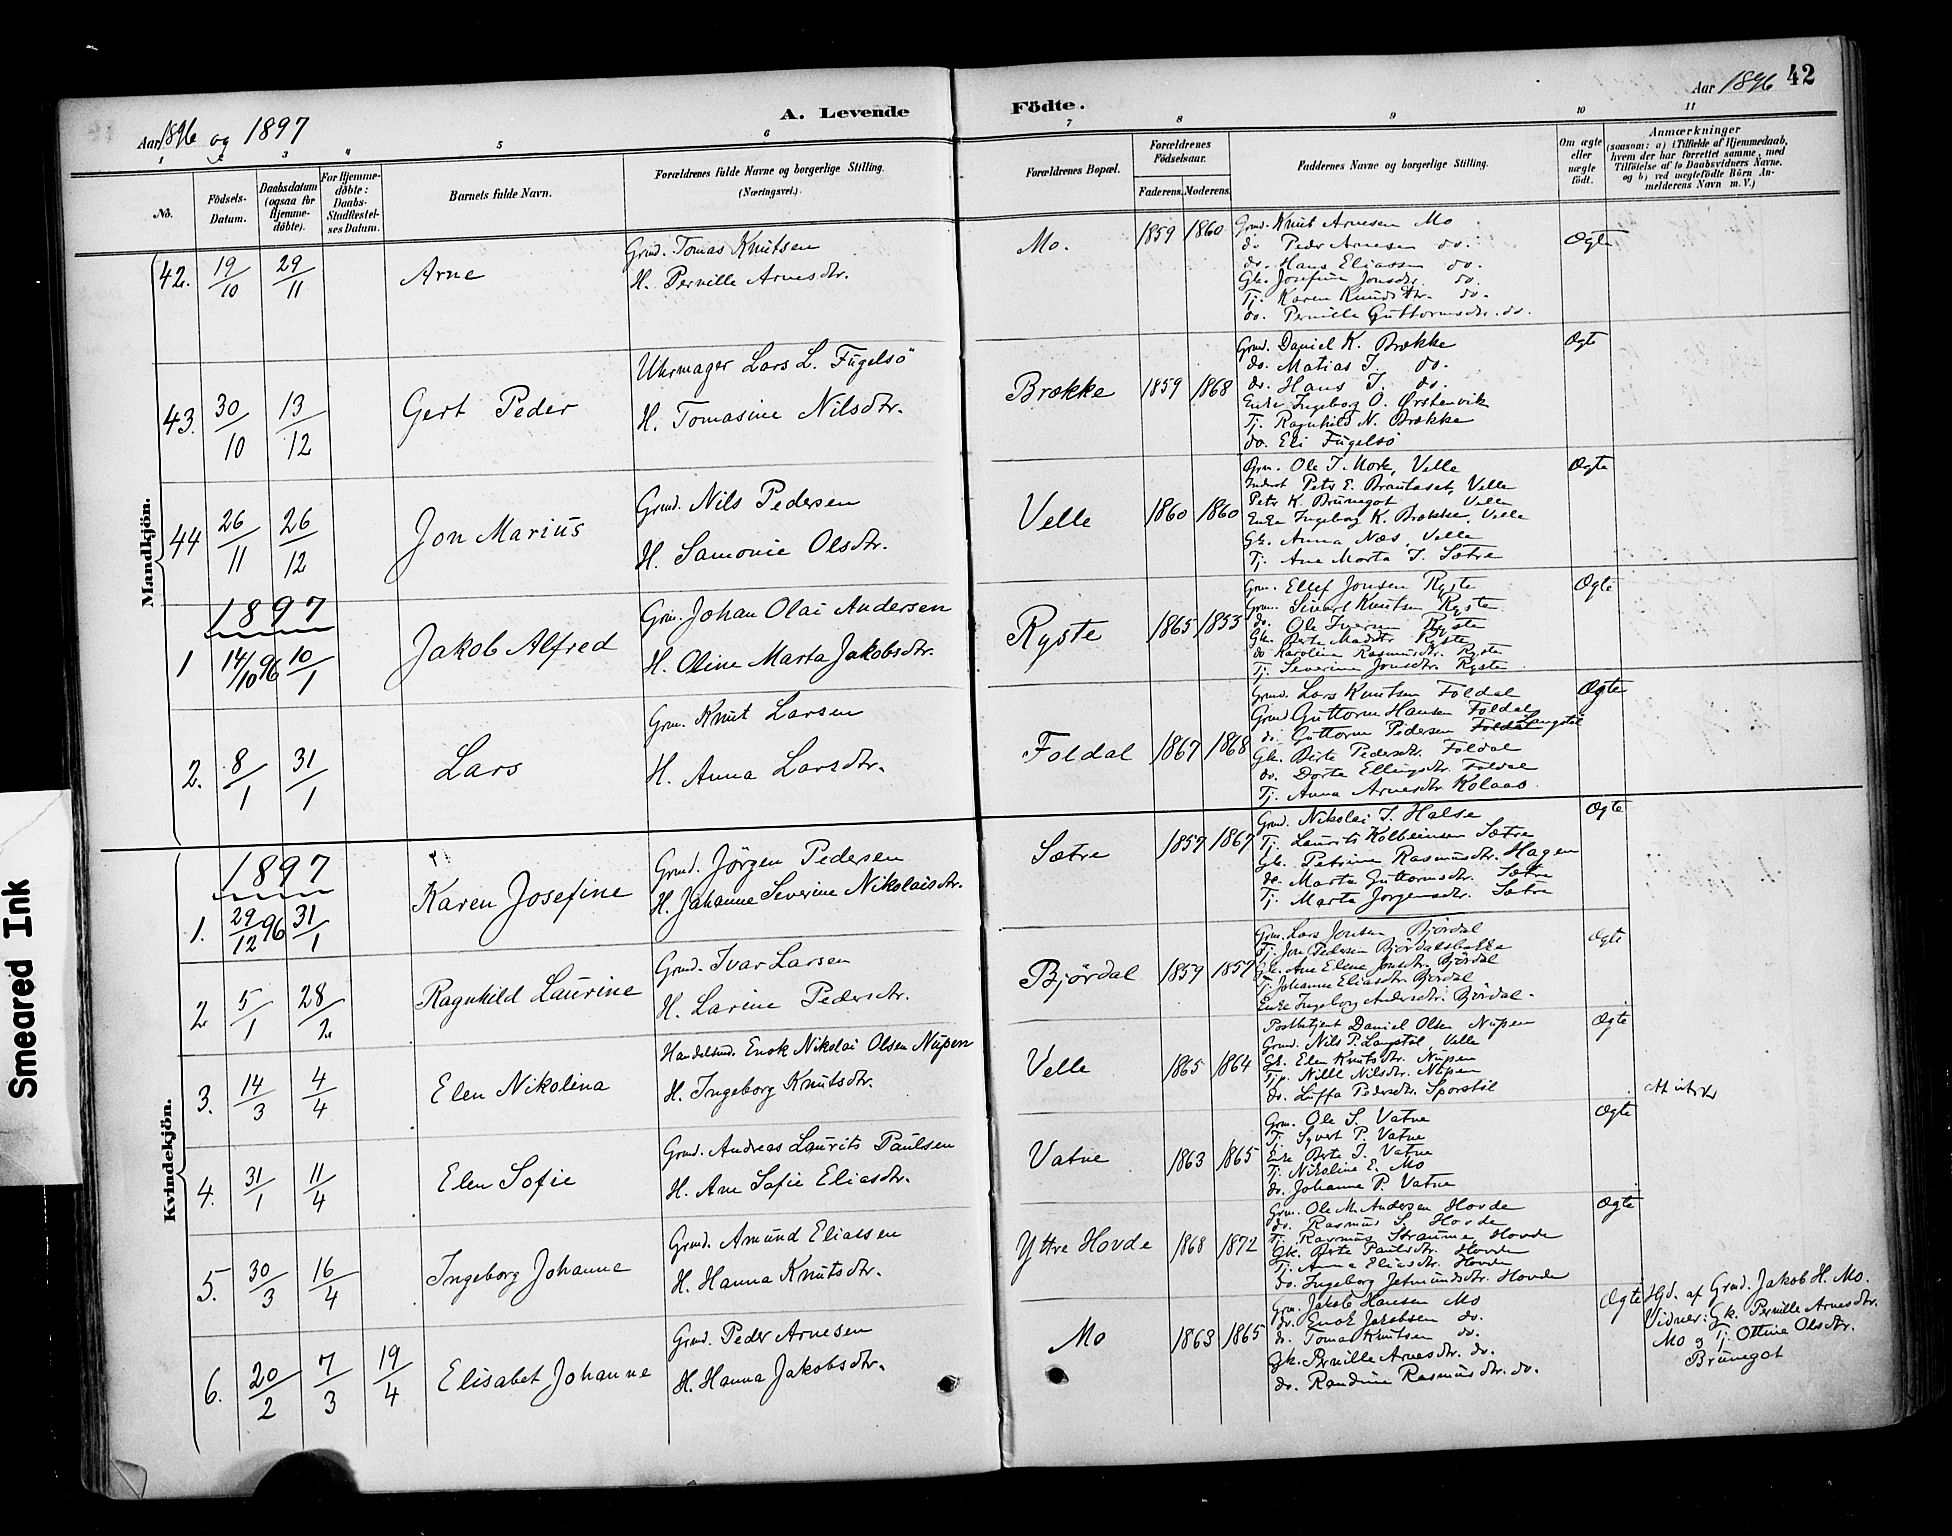 42
Aar 1896
Aar 1896 og 1897
A. Levende Födte.
1 2 3 4 5 6 7 8 9 10 11
No.
Födsels-Datum.
Daabsdatum (ogsaa for Hjemme-döbte).
For Hjemme-döbte: Daabs-Stadfæstel-ses Datum.
Barnets fulde Navn.
Forældrenes fulde Navne og borgerlige Stilling.
(Næringsvei.)
Forældrenes Bopæl.
Forældrenes Födselsaar.
Faderens. Moderens.
Faddernes Navne og borgerlige Stilling.
Om ægte eller uægte födt.
Anmærkninger
(saasom: a) i Tilfælde af Hjemmedaab, hvem der har forrettet samme, med Tilföielse af to Daabsvidners Navne, og b) ved uægtefödte Börn An-melderens Navn m. V.)
Mandkjön.
42. 19/10 29/11 Arne
Grmd. Tomas Knutsen
H. Pernille Arnesdtr.
Mo. 1859 1860
Grmd. Knut Arnesen Mo
do Peder Arnesen do.
do. Hans Eliassen do.
Gk. Josefine Jonsdtr. do.
Tj. Karen Knudsdtr. do.
do. Pernille Guttormsdtr. do.
Ægte
43. 30/10 13/12 Gert Peder
Uhrmager Lars L. Fugelsö
H. Tomasine Nilsdtr.
Brække 1859 1868
Grmd. Daniel K. Brække
do. Matias J. do.
do. Hans J. do.
Enke Ingeborg O. Ørstenvik
Tj. Ragnhild N. Brække
do. Eli Fugelsö
Ægte
44 26/11 26/12 Jon Marius
Grmd. Nils Pedersen
H. Samonie Olsdtr.
Velle 1860 1860
Grm. Ole J. Mork, Velle
Inderst Peter E. Brautaset, Velle
Peter K. Brunegot Velle
Enke Ingeborg K. Brække, Velle
Gk. Anna Næs, Velle
Tj. Ane Marta J. Sætre
Ægte
1897
1 14/10 96 10/1 Jakob Alfred
Grm. Johan Olai Andersen
H. Oline Marta Jakobsdtr.
Ryste 1865 1853
Grm. Ellef Jonsen Ryste
Grm. Sivert Knutsen Ryste
do. Ole Iversen Ryste
Gk. Berte Madsdtr Ryste
do Karolina Rasmusdtr. Ryste
Tj. Severine Jonsdtr. Ryste
Ægte
2. 8/1 31/1 Lars
Grm. Knut Larsen
H. Anna Larsdtr.
Foldal 1867 1868
Grmd. Lars Knutsen Foldal
Grmd Guttorm Hansen Foldal
do. Guttorm Pedersen Foldal Langstöl
Gk. Berte Pedersdtr. Foldal
do. Dorte Ellingsdtr. Foldal
Tj. Anna Arnesdtr. Kolaas
Ægte
Kvindekjön.
1897
1. 29/12 96 31/1 Karen Josefine
Grmd. Jörgen Pedersen
H. Johanne Severine Nikolaisdtr.
Sætre 1857 1867
Grmd. Nikolai J. Halse
Tj. Laurits Kolbeinsen Sætre
Gk. Petrine Rasmusdtr. Hagen
do. Marta Guttormsdtr. Sætre
Tj. Marta Jörgensdtr. Sætre
Ægte
2 5/1 28/2 Ragnhild Laurine
Grmd. Ivar Larsen
H. Larine Pedersdtr.
Björdal 1859 1857
Grm. Lars Jonsen Björdal
Tj. Jon Pedersen Björdalsbakke
Gk. Ane Elene Jonsdtr. Björdal
Tj. Johanne Eliasdtr. Björdal
Enke Ingeborg Andersdtr. Björdal.
Ægte
3. 14/3 4/4 Elen Nikolina
Handelsmd. Enok Nikolai Olsen Nupen
H. Ingeborg Knutsdtr.
Velle 1865 1864
Postbetjent Daniel Olsen Nupen
Grmd. Nils P. Langstöl, Velle
Gk. Elen Knutsdtr. Nupen
Tjp. Nille Nilsdtr. Nupen
do. Luffa Pedersdtr. Sporstöl
Ægte
4. 31/1 11/4 Elen Sofie
Grmd. Andreas Laurits Paulsen
H. Ane Sofie Eliasdtr.
Vatne 1863 1865
Grm. Ole S. Vatne
Tj. Syvert P. Vatne
Enke Berte J. Vatne
Tj. Nikoline E. Mo
do. Johanne P. Vatne
Ægte
5. 30/3 16/4 Ingeborg Johanne
Grmd. Amund Eliassen
H. Hanna Knutsdtr.
Yttre Hovde 1868 1872
Grm. Ole M. Andersen Hovde
do. Rasmus S. Hovde
Tj. Rasmus Straume Hovde
Gk. Berte Paulsdtr. Hovde
Tj. Anna Eliasdtr. Hovde
do. Ingeborg Jetmundsdtr. Hovde
Ægte
6. 20/2 7/3 19/4 Elisabet Johanne
Grmd. Peder Arnesen
H. Hanna Jakobsdtr.
Mo 1863 1865
Grm. Jakob Hansen Mo
do. Enok Jakobsen do.
do. Tomas Knutsen do.
Gk. Pernille Arnesdtr. do.
do. Randine Rasmusdtr. do.
Ægte
Hjd. af Grmd. Jakob H. Mo.
Vidner: Gk. Pernille Arnesdtr.
Mo og Tj. Ottine Olsdtr.
Brunegot
Smeared Ink